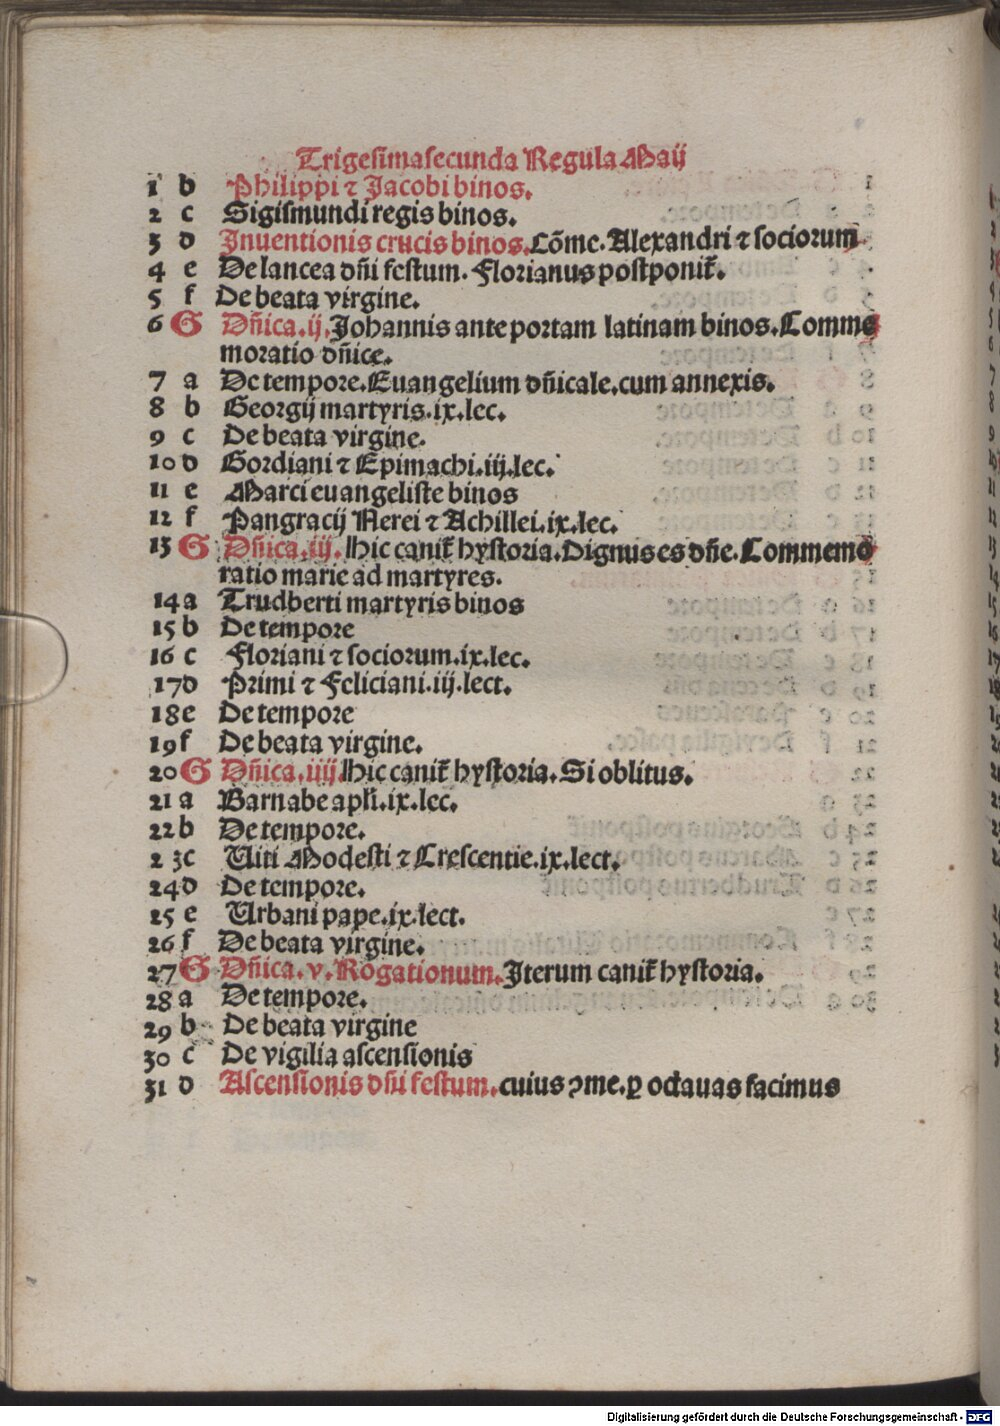 Trigesimasecunda Regula Maij
1 b Philippi ⁊ Jacobi binos.
2 c Sigismundi regis binos.
3 d Inuentionis crucis binos. Cōme. Alexandri ⁊ sociorum
4 e De lancea dñi festum. Florianus postponit̃.
5 f De beata virgine.
6 G Dñica. ij. Johannis ante portam latinam binos. Comme
moratio dñice.
7 a De tempore. Euangelium dñicale. cum annexis.
8 b Georgij martyris. ix. lec.
9 c De beata virgine.
10 d Gordiani ⁊ Epimachi. iij. lec.
11 e Marci euangeliste binos
12 f Pangracij Nerei ⁊ Achillei. ix. lec.
13 G Dñica. iij. Hic canit̃ hystoria. Dignus es dñe. Commemo
ratio marie ad martyres.
14 a Trudberti martyris binos
15 b De tempore
16 c Floriani ⁊ sociorum. ix. lec.
17 d Primi ⁊ Feliciani. iij. lect.
18 e De tempore
19 f De beata virgine.
20 G Dñica. iiij. Hic canit̃ hystoria. Si oblitus.
21 a Barnabe apľi. ix. lec.
22 b De tempore.
23 c Uiti Modesti ⁊ Crescentie. ix. lect.
24 d De tempore.
25 e Urbani pape. ix. lect.
26 f De beata virgine.
27 G Dñica. v. Rogationum. Iterum canit̃ hystoria.
28 a De tempore.
29 b De beata virgine
30 c De vigilia ascensionis
31 d Ascensionis dñi festum. cuius ꝯme. ꝑ octauas facimus
Digitalisierung gefördert durch die Deutsche Forschungsgemeinschaft - DFG